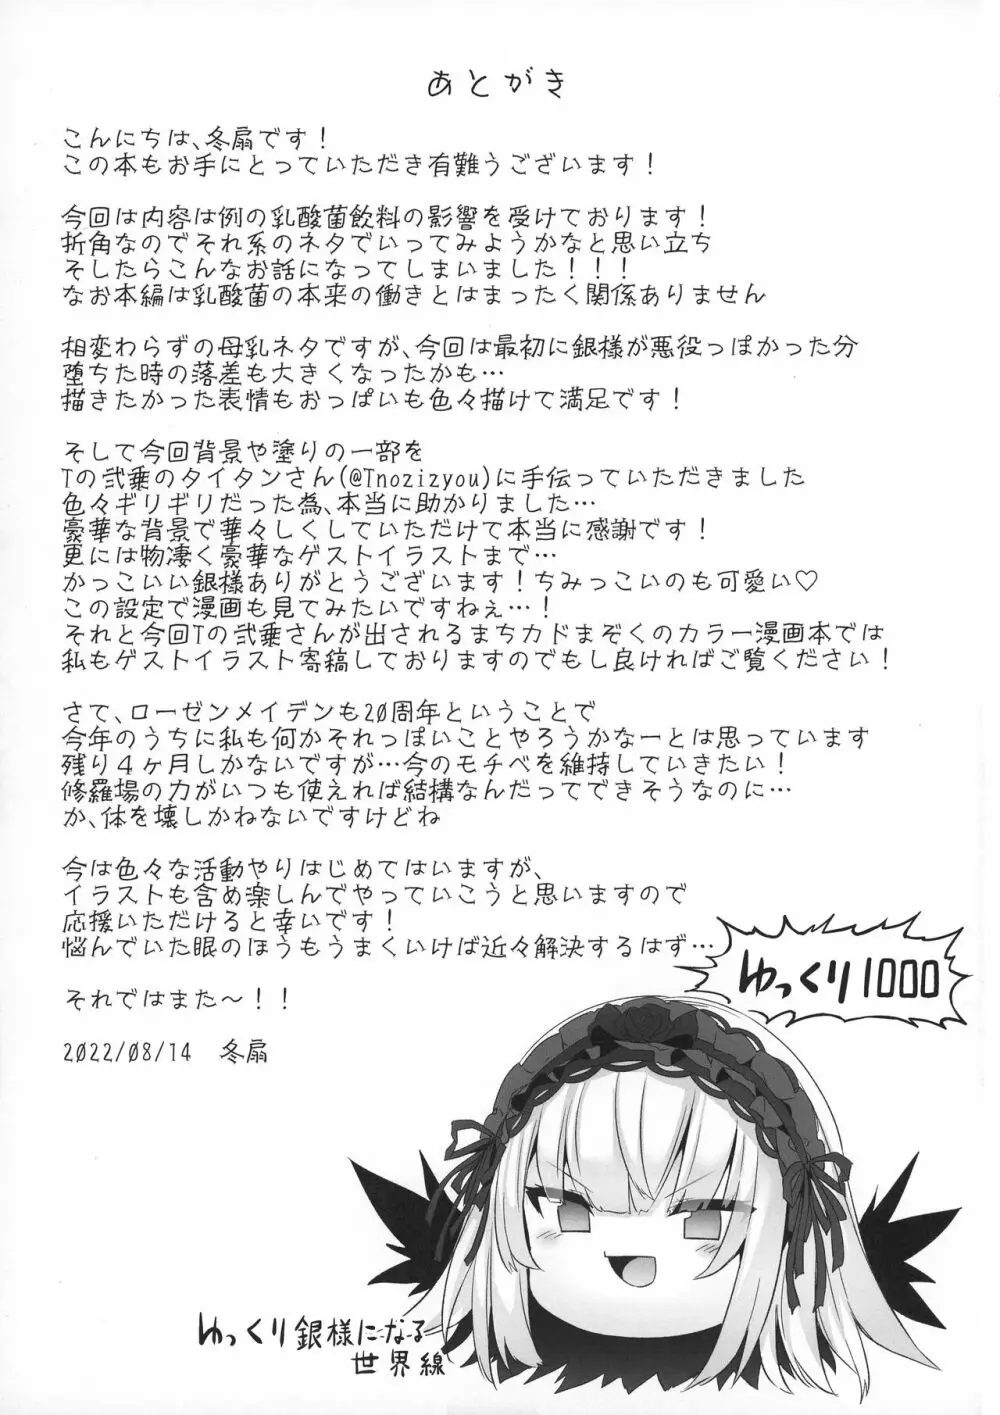 あとがき
こんにちは、冬扇です！
この本もお手にとっていただき有難うございます！
今回は内容は例の乳酸菌飲料の影響を受けております！
折角なのでそれ系のネタでいってみようかなと思い立ち
そしたらこんなお話になってしまいました！！！
なお本編は乳酸菌の本来の働きとはまったく関係ありません
相変わらずの母乳ネタですが、今回は最初に銀様が悪役っぽかった分
堕ちた時の落差も大きくなったかも…
描きたかった表情もおっぱいも色々描けて満足です！
そして今回背景や塗りの一部を
Tの弐乗のタイタンさん(@Tnozizyou)に手伝っていただきました
色々ギリギリだった為、本当に助かりました…
豪華な背景で華々しくしていただけて本当に感謝です！
更には物凄く豪華なゲストイラストまで…
かっこいい銀様ありがとうございます！ちみっこいのも可愛い♡
この設定で漫画も見てみたいですねぇ…！
それと今回Tの弐乗さんが出されるまちカドまぞくのカラー漫画本では
私もゲストイラスト寄稿しておりますのでもし良ければご覧ください！
さて、ローゼンメイデンも20周年ということで
今年のうちに私も何かそれっぽいことやろうかなーとは思っています
残り4ヶ月しかないですが…今のモチベを維持していきたい！
修羅場の力がいつも使えれば結構なんだってできそうなのに…
か、体を壊しかねないですけどね
今は色々な活動やりはじめてはいますが、
イラストも含め楽しんでやっていこうと思いますので
応援いただけると幸いです！
悩んでいた眠のほうもうまくいけば近々解決するはず…
それではまた～！！
2022/08/14 冬扇
ゆっくり1000
ゆっくり銀様になる
世界線